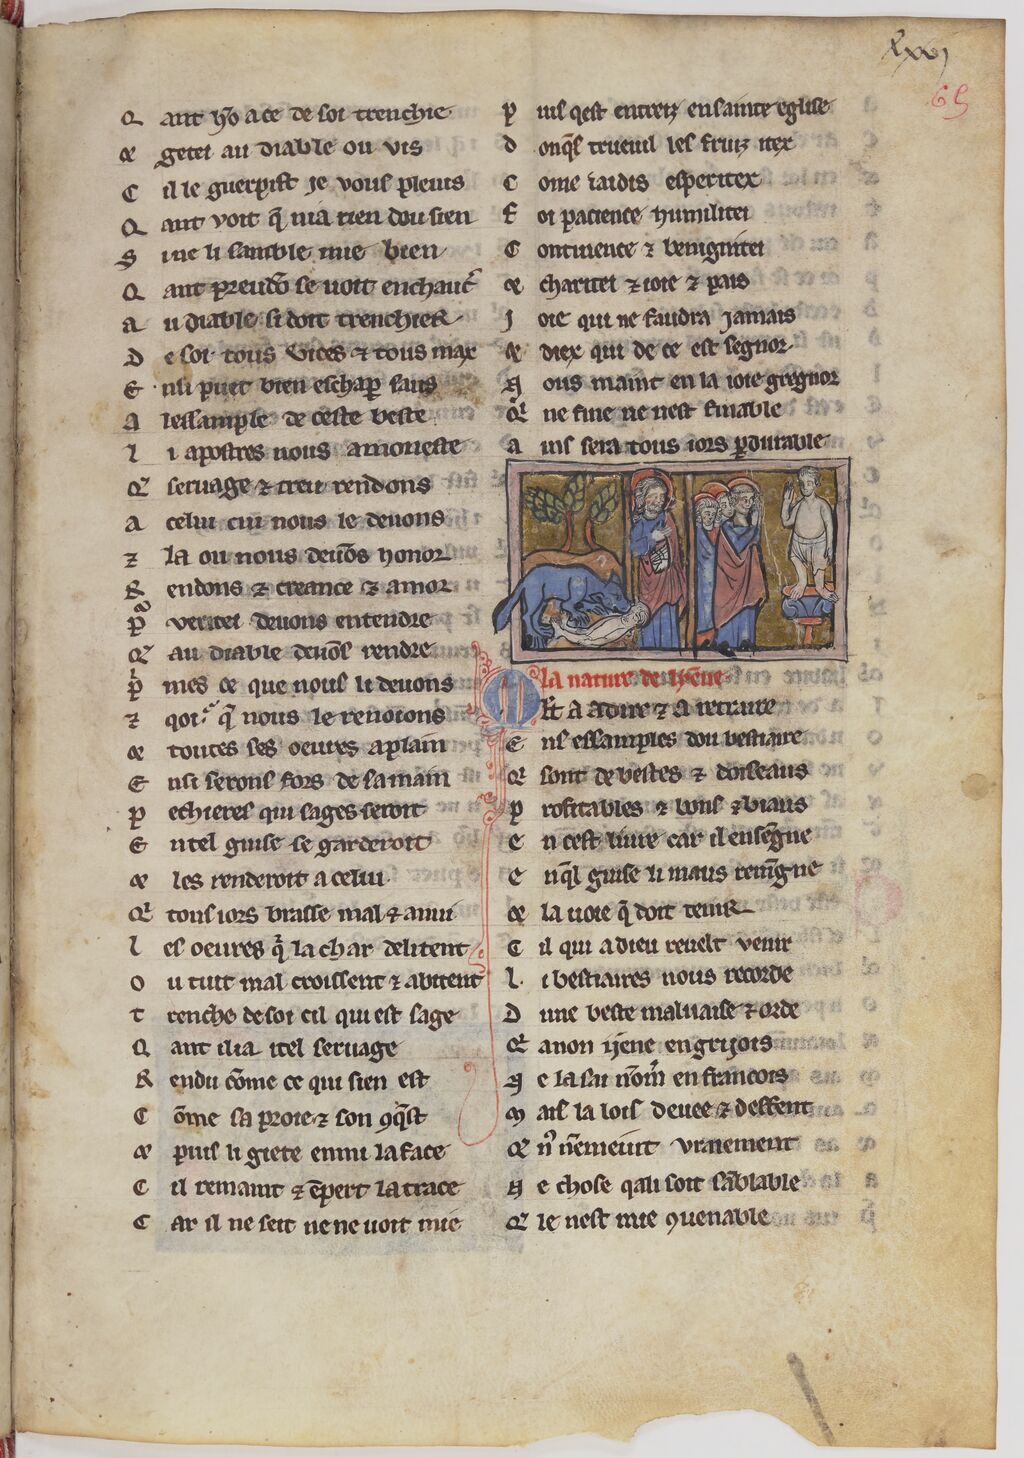 lxxvj
65
Q ant hõ a ce de soi trenchie
⁊ getei au diable ou vis
C il le guerpist je vous pleuis
Q ant voit q̃ nia rien dou sien
S ine li samble mie bien
Q ant preudõ se uoit enchaucˀ
a u diable si doit trenchier
D e soi tous vices ⁊ tous max
E nsi puet bien eschap̲ saus
A lessample de ceste beste
l i apostres nous amoneste
Q̃ seruage ⁊ treu rendons
a celui cui nous le deuons
⁊ la ou nous deuõs honor
R endons ⁊ creance ⁊ amor
veritei deuons entendre
Q̃ au diable deuõs rendre
mes ce que nous li deuons
q̃ nous le renoions
⁊ toutes ses oeures a plain
E nsi serons fors de sa main
p echieres qui sages seroit
E n tel guise se garderoit
⁊ les renderoit a celui
Q̃ tous iors brasse mal ⁊ anui
l es oeures q̃ la char delitent
O u tuit mal croissent ⁊ abitent
t renche de soi cil qui est sage
Q ant il ia itel seruage
R endu cõme ce qui sien est
C õme sa proie ⁊ son ꝯq̃st
⁊ puis li giete enmi la face
C il remaint ⁊ ꝑert la trace
C ar il ne seit ne ne uoit mie
p uis qest entrez en sainte eglise
d onq̃s trueuil les fruiz itex
C ome iaidis esperitex
F oi pacience humilitei
C ontinence ⁊ benignitei
⁊ charitei ⁊ ioie ⁊ pais
J oie qui ne faudra jamais
⁊ diex qui de ce est segnor
N ous maint en la ioie gregnor
Q̃ ne fine ne nest finable
a ins sera tous iors ꝑdurable
la nature de hyene
M lt a a dire ⁊ a retraire
E ns essamples dou bestiaire
Q̃ sont de bestes ⁊ doiseaus
P rofitables ⁊ bons ⁊ biaus
E n cest liure car il ensẽgne
E n q̃l guise li maus remãgne
⁊ la uoie q̃ doit tenir
C il qui a dieu reuelt venir
L i bestiaires nous recorde
D une beste maluaise ⁊ orde
Q̃ a non ijene en grijois
N e la sai nõmˀ en francois
M ais la lois deuee ⁊ deffent
vraiement
N e chose q̃ a li soit sãblable
Q̃ le nest mie ꝯuenable